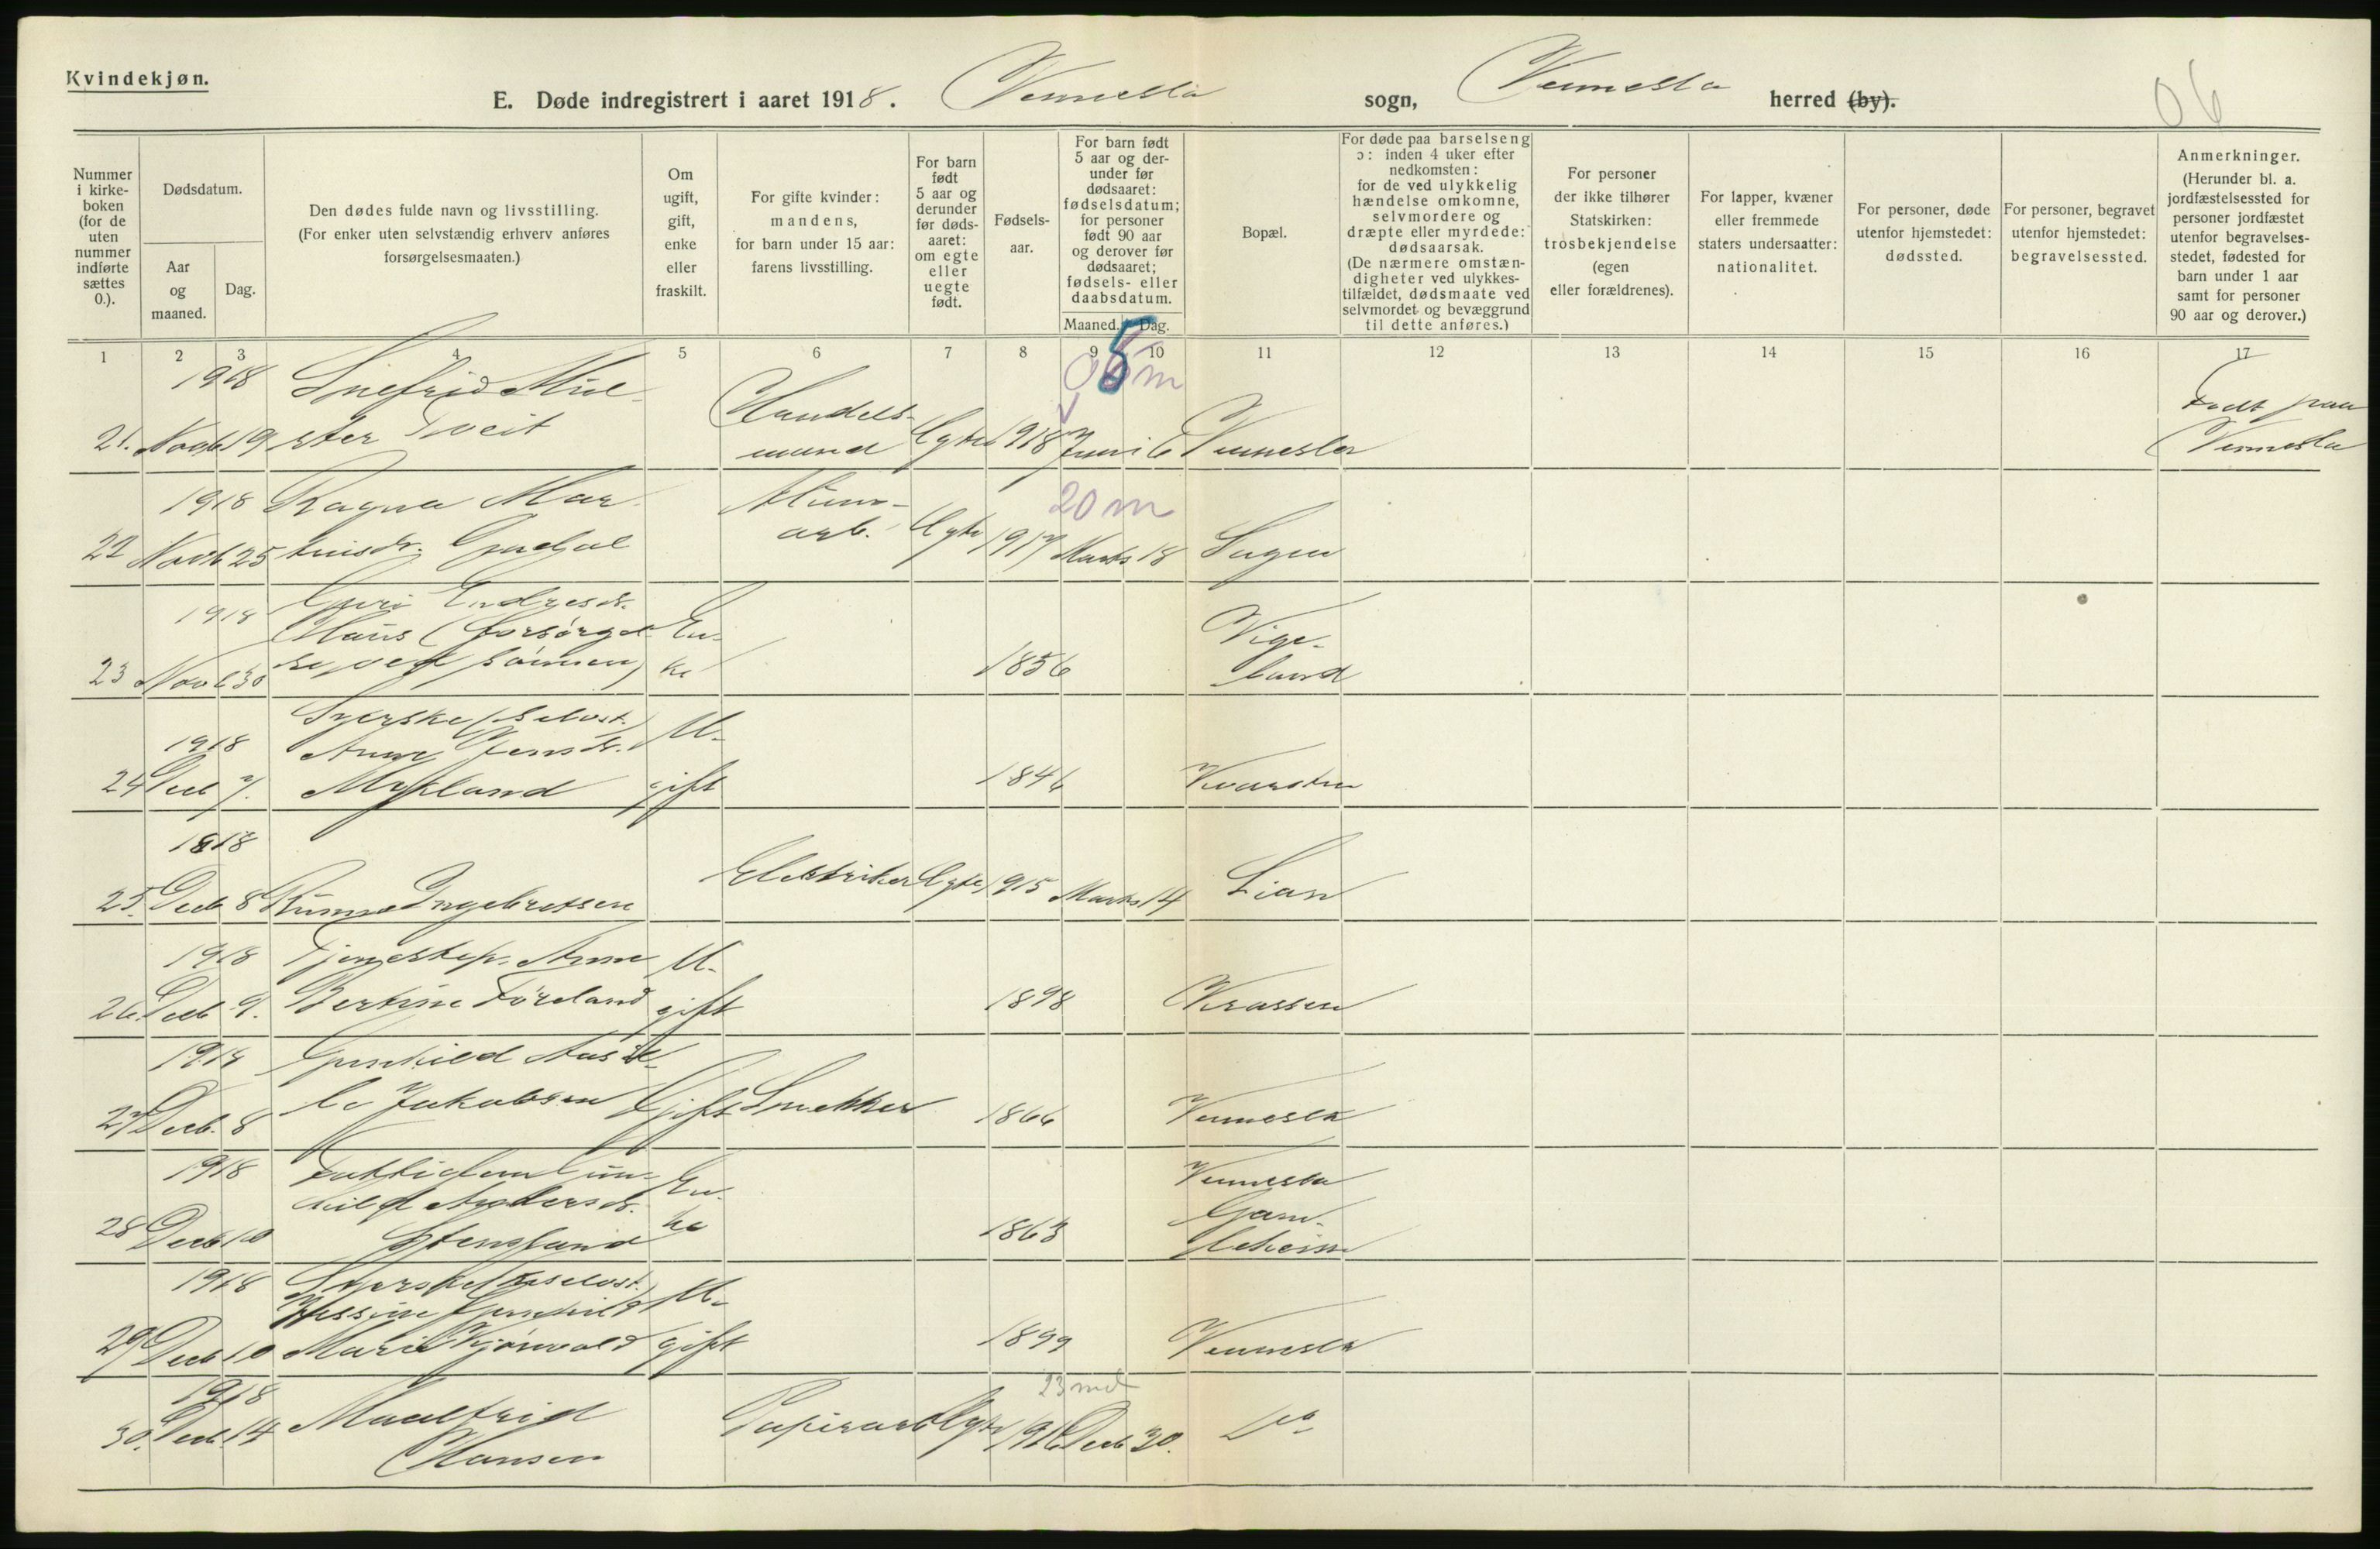 Kvindekjøn.
E. Døde indregistrert i aaret 1918. Vennesla sogn, Vennesla herred (by).
06
Nummer i kirkeboken (for de uten nummer indførte sættes 0.).
Dødsdatum.
Aar og maaned.
Dag.
Den dødes fulde navn og livsstilling.
(For enker uten selvstændig erhverv anføres
forsørgelsesmaaten.)
Om ugift, gift, enke eller fraskilt.
For gifte kvinder:
mandens,
for barn under 15 aar:
farens livsstilling.
For barn født 5 aar og derunder før dødsaaret: om egte eller uegte født.
Fødselsaar.
For barn født 5 aar og derunder før dødsaaret: fødselsdatum; for personer født 90 aar og derover før dødsaaret; fødsels- eller daabsdatum.
Maaned. Dag.
Bopæl.
For døde paa barselseng
ɔ: inden 4 uker efter
nedkomsten:
for de ved ulykkelig
hændelse omkomne,
selvmordere og
dræpte eller myrdede:
dødsaarsak.
(De nærmere omstæn-
digheter ved ulykkes-
tilfældet, dødsmaate ved
selvmordet og bevæggrund
til dette anføres.)
For personer
der ikke tilhører
Statskirken:
trosbekjendelse
(egen
eller forældrenes).
For lapper, kvæner
eller fremmede
staters undersaatter:
nationalitet.
For personer, døde
utenfor hjemstedet:
dødssted.
For personer, begravet
utenfor hjemstedet:
begravelsessted.
Anmerkninger.
(Herunder bl. a.
jordfæstelsessted for
personer jordfæstet
utenfor begravelses-
stedet, fødested for
barn under 1 aar
samt for personer
90 aar og derover.)
1 2 3 4 5 6 7 8 9 10 11 12 13 14 15 16 17
1918 5 m
Handels- Født paa
21. Novb 19 Tveit mand Egte 1918 Juni 6 Vennesla Vennesla
1918 Ragna Mar- Alum- 20 m
22 Novb 25 tinsdr. arb. Egte 1917 Marts 18
1918 Guri Endresdr.
(forsørgedes En- Vige-
23 Novb 30 ved sønnen) ke 1856 land
Syerske (selvst.)
1918 Anne Jensdr. U-
24 Decb 7. Mykland gift 1846 Kvarsten
1918
25. Decb 8 Ingebretsen Elektriker Egte 1915 Marts 14 Lian
1918 Tjenestep. Anne U-
26. Decb 9. Bertine Føreland gift 1898
1918 Gunhild
27 Decb. 8 Jakobsen Gift Snekker 1866 Vennesla
1918 Fattiglem Gun- En- Vennesla
hild Andersdr. Gam-
28 Decb 10 Stensland ke 1863 leheim
1918 Syerske selvst. U-
Gunhild
29 Decb 10 Marie gift 1899 Vennesla
1918 23 md
30. Decb. 14 Maalfrid Papirarb Egte 1916 Decb 30. Do
Hansen